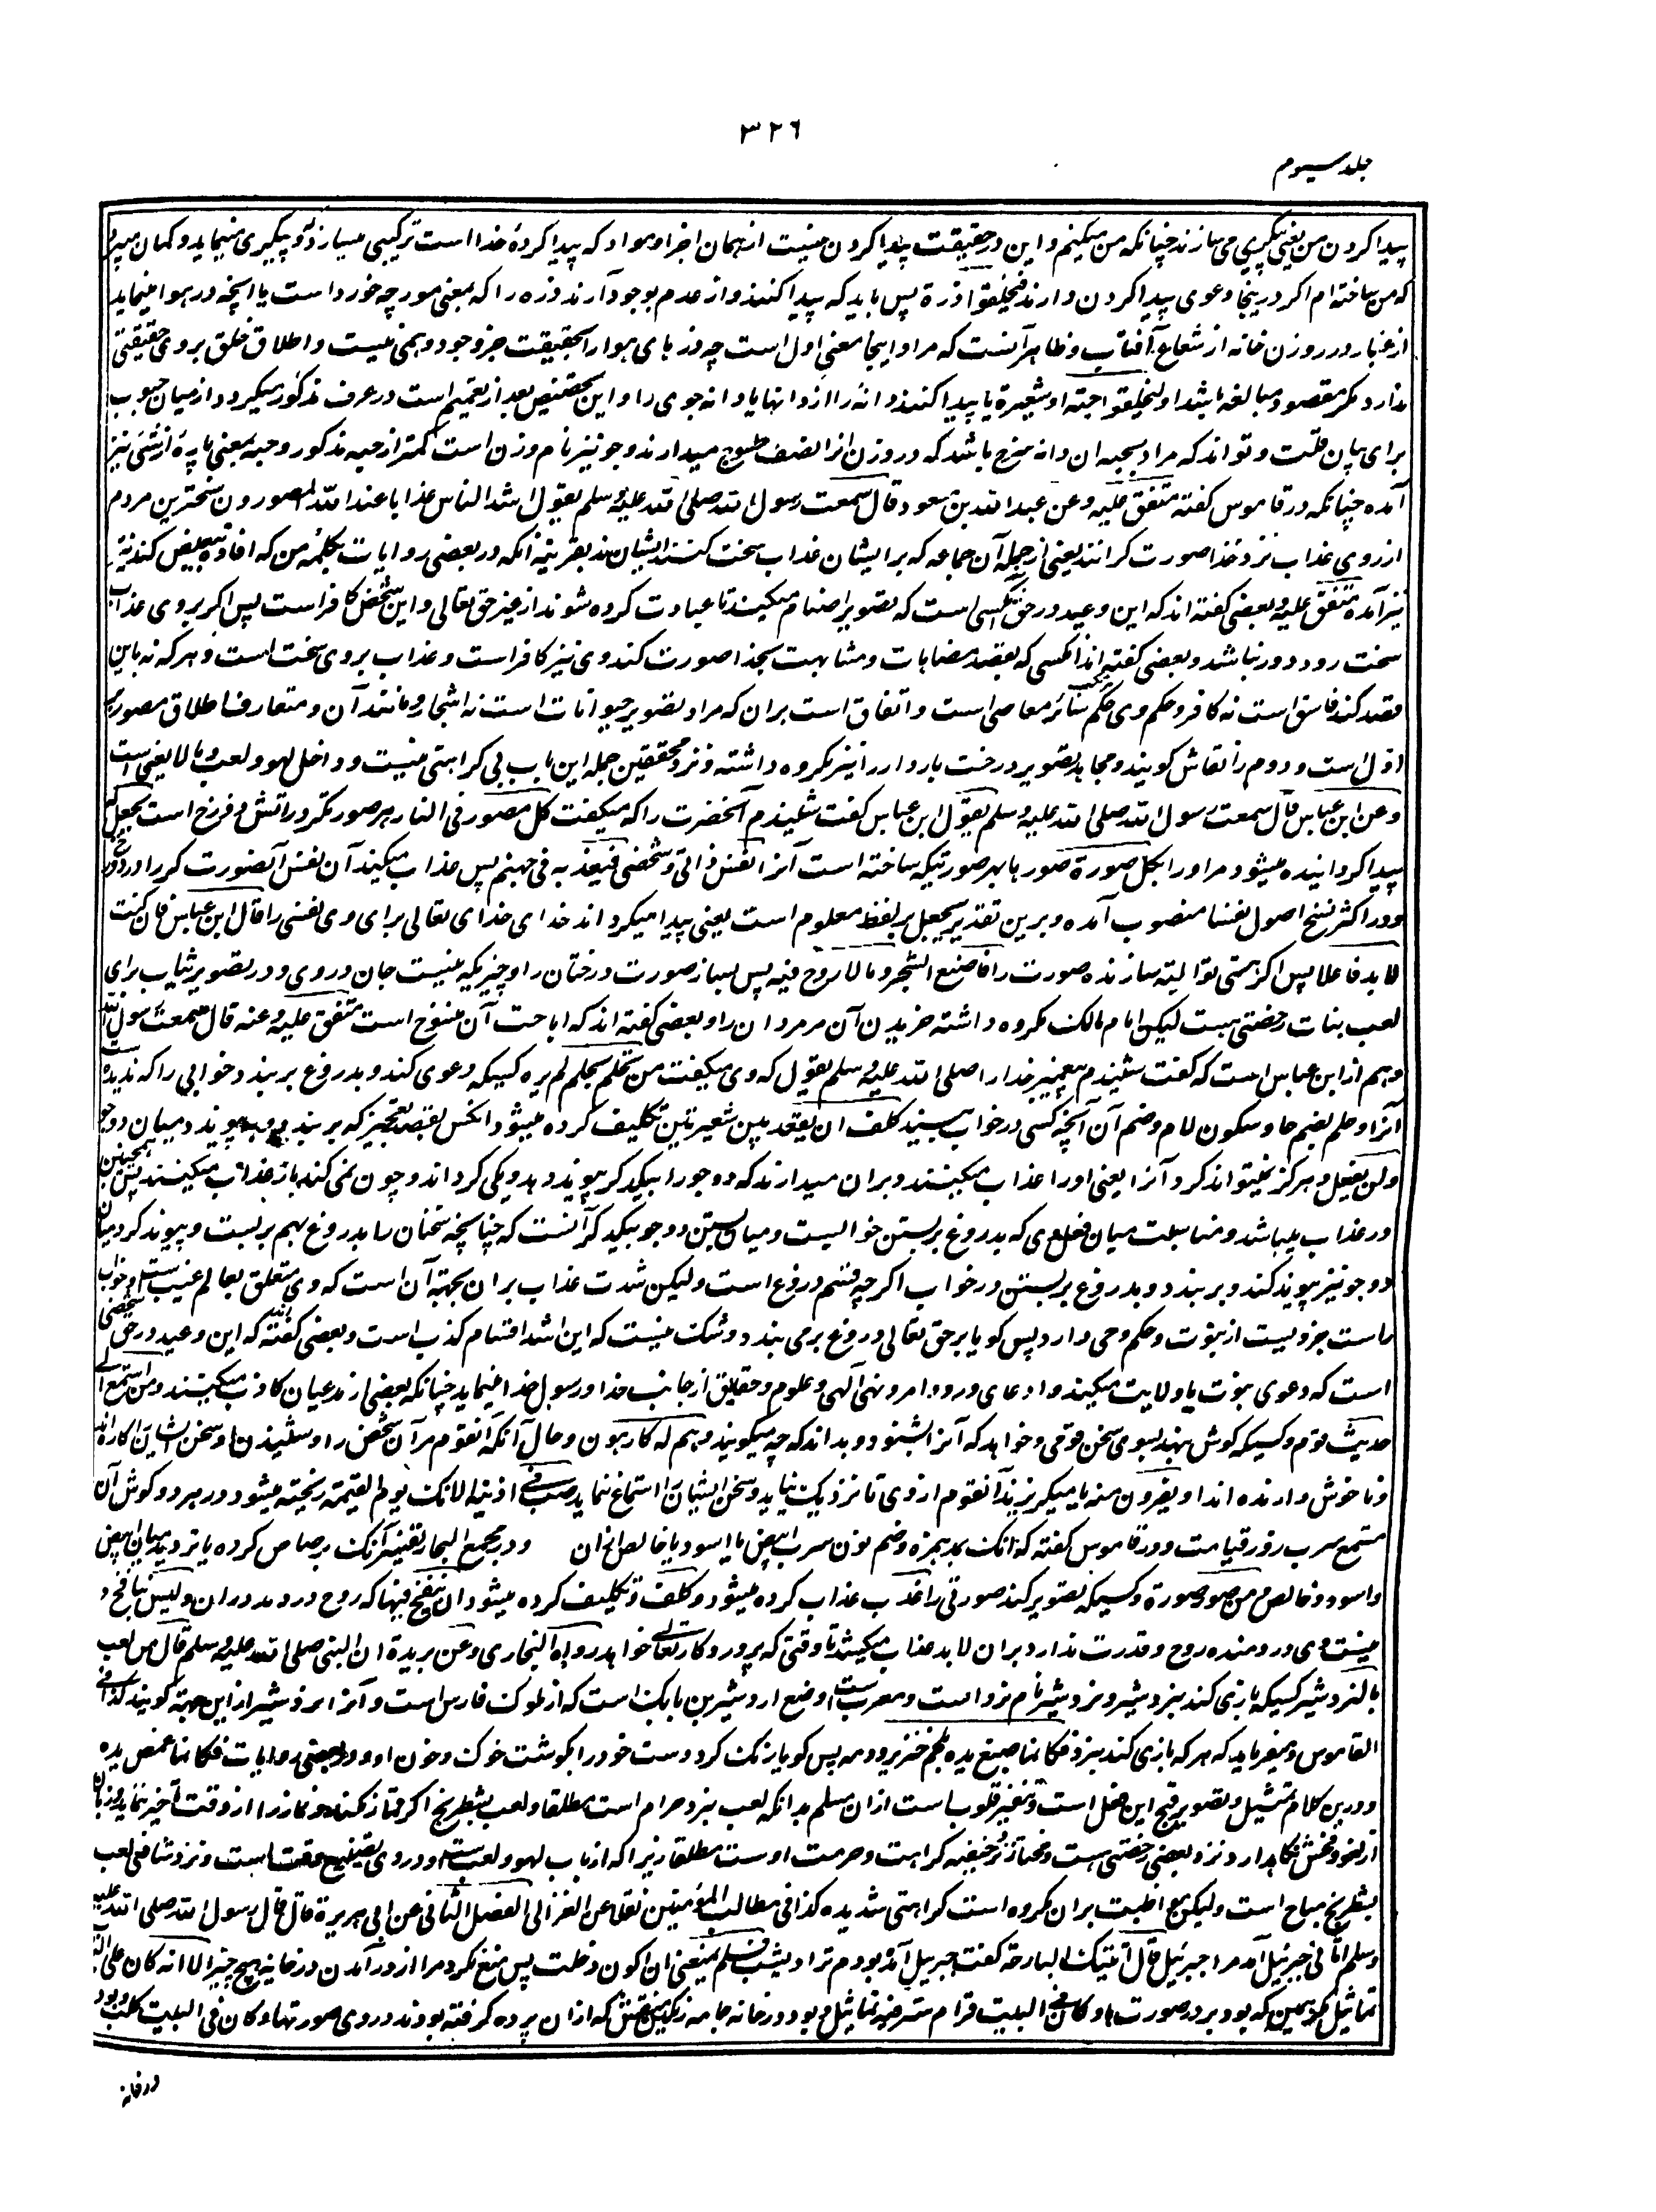 ۳۲٦
جلد سیوم
پیدا کردن من یعنی پیکری می سازند چنانکه من میکنم و این در حقیقت پیدا کردن نیست از همان اجزا و مواد که پیدا کردهٔ خدا است ترکیبی میسازد و پیکری مینماید و گمان میبرد
که من ساخته ام اگر در اینجا دعوی پیدا کردن دارند فلیخلقوا ذرة پس باید که پیدا کنند و از عدم بوجود آرند ذره را که بمعنی مورچه خورد است یا آنچه در هوا مینماید
از غبار در روزن خانه از شعاع آفتاب و ظاهر آنست که مراد اینجا معنی اول است چه ذرهای هوا را بحقیقت جز وجود وهمی نیست و اطلاق خلق بروی حقیقتی
ندارد مگر مقصود مبالغه باشد او لیخلقوا حبة او شعیرة یا پیدا کنند دانه را از دانها یا دانه جوی را و این تخصیص بعد از تعمیم است در عرف مذکور میگردد از میان حبوب
برای بیان قلت و تواند که مراد بحبه ان دانه سرخ باشد که در وزن انرا نصف طسوج میدارند و جو نیز نام وزن است کمتر از حبه مذکور و حبه بمعنی پاره از شئ نیز
آمده چنانکه در قاموس گفته متفق علیه وعن عبد الله بن مسعود قال سمعت رسول الله صلی الله علیه و سلم یقول اشد الناس عذابا عند الله المصورون سخت ترین مردم
از روی عذاب نزد خدا صورت گرانند یعنی از جمله آن جماعه که بر ایشان عذاب سخت کنند ایشانند بقرینه آنکه در بعضی روایات بکلمهٔ من که افادهٔ تبعیض کند نیز
نیز آمده متفق علیه و بعضی گفته اند که این وعید در حق کسی است که تصویر اصنام میکند تا عبادت کرده شوند از غیر حق تعالی و این شخص کافر است پس اگر بروی عذاب
سخت رود دور نباشد و بعضی گفته اند آنکسی که بقصد مضاهات و مشابهت بخدا صورت کند وی نیز کافر است و عذاب بروی سخت است و هر که نه باین
قصد کند فاسق است نه کافر و حکم وی حکم سائر معاصی است و اتفاق است بران که مراد تصویر حیوانات است نه اشجار و مانند آن و متعارف اطلاق مصور بر
اول است و دوم را نقاش گویند و مجاهد تصویر درخت باردار را نیز مکروه داشته و نزد محققین جمله این باب بی کراهتی نیست و داخل لهو و لعب و ما لا یعنی است
وعن ابن عباس قال سمعت رسول الله صلی الله علیه و سلم یقول ابن عباس گفت شنیدم آنحضرت را که میگفت کل مصور فی النار هر صورتگر در آتش دوزخ است یجعل له
پیدا گردانیده میشود مر او را بکل صورة صورها بهر صورتیکه ساخته است آنرا نفس ذاتی و شخصی فیعذبه فی جهنم پس عذاب میکند آن نفس آن صورت گر را در دوزخ
و در اکثر نسخ اصول نفسا منصوب آمده و برین تقدیر یجعل بر لفظ معلوم است یعنی پیدا میگرداند خدای تعالی برای وی نفسی را قال ابن عباس فان کنت
لا بد فاعلا پس اگر هستی تو البته سازنده صورت را فاصنع الشجر و ما لا روح فیه پس بساز صورت درختان را و چیزیکه نیست جان در وی و در تصویر ثیاب برای
لعب بنات رخصتی هست لیکن امام مالک مکروه داشته خریدن آن مر مردان را و بعضی گفته اند که اباحت آن منسوخ است متفق علیه وعنه قال سمعت رسول الله
وهم از ابن عباس است که گفت شنیدم پیغمبر خدا را صلی الله علیه و سلم یقول که وی میگفت من تحلم بحلم لم یره کسیکه دعوی کند و بدروغ بر بندد خوابی را که ندیده است
آنرا و حلم بضم حا و سکون لام و ضم آن آنچه کسی در خواب ببیند کلف ان یعقد بین شعیرتین تکلیف کرده میشود انکس بقصد تعجیز که بر بندد و پیوند دهد میان دو جو
ولن یفعل و هرگز نمیتواند کرد آنرا یعنی او را عذاب میکنند و بران میدارند که دو جو را بیکدیگر پیوند دهد و یکی گرداند و چون نمی کند باز عذاب میکنند پس همچنین
در عذاب میباشد و مناسبت میان فعل وی که بدروغ بر بستن خوابیست و میان بستن دو جو بیکدیگر آنست که چنانچه سخنان را بدروغ بهم بر بست و پیوند کرد میان
دو جو نیز پیوند کند و بر بندد و بدروغ بر بستن در خواب اگرچه قسم دروغ است ولیکن شدت عذاب بران بجهة آن است که وی متعلق بعالم غیب است و خواب
راست جزویست از نبوت و حکم وحی دارد پس گویا بر حق تعالی دروغ بر می بندد و شک نیست که این اشد اقسام کذب است و بعضی گفته اند که این وعید در حق شخصی
است که دعوی نبوت یا ولایت میکند و ادعای ورود امر و نهی آلهی و علوم و حقایق از جانب خدا و رسول خدا مینماید چنانکه بعضی از مدعیان کاذب میکنند ومن استمع الی
حدیث قوم و کسیکه گوش بنهد بسوی سخن قومی و خواهد که آنرا بشنود و بداند که چه میگویند وهم له کارهون و حال آنکه آنقوم مر آن شخص را و شنیدن او سخن ایشان را کاره اند
و ناخوش دارنده اند او یفرون منه یا میگریزند آنقوم از وی تا نزدیک نیاید و سخن ایشان را استماع ننماید صب فی اذنیه الآنک یوم القیمة ریخته میشود در هر دو گوش آن
مستمع سرب روز قیامت و در قاموس گفته که آنک بمد همزه و ضم نون سرب ابیض یا اسود یا خالص از ان و در مجمع البحار تفسیر آنک برصاص کرده یا تردید میان ابیض
و اسود و خالص ومن صور صورة و کسیکه تصویر کند صورتی را عذب عذاب کرده میشود و کلف و تکلیف کرده میشود ان ینفخ فیها که روح در دمد دران ولیس بنافخ و
نیست وی در دمنده روح و قدرت ندارد بران لابد عذاب میکشد تا وقتی که پروردگار تعالی خواهد رواه البخاری وعن بریدة ان النبی صلی الله علیه و سلم قال من لعب
بالنردشیر کسیکه بازی کند بنردشیر و نردشیر نام نرد است و معرب است وضع اردشیر بن بابک است که از ملوک فارس است و آنرا نردشیر از این جهة گویند کذا فی
القاموس و میفرماید که هر که بازی کند بنرد فکانما صبغ یده بلحم خنزیر و دمه پس گویا رنگ کرد دست خود را بگوشت خوک و خون او و در بعضی روایات فکانما غمس یده
و درین کلام تمثیل و تصویر قبح این فعل است و تنفیر قلوب است ازان مسلم بدانکه لعب بنرد حرام است مطلقا و لعب بشطرنج اگر قمار نکند و نماز را از وقت تاخیر ننماید و زبان
از لغو و فحش نگاهدارد نزد بعضی رخصتی هست و مختار نزد حنفیه کراهت و حرمت اوست مطلقا زیرا که از باب لهو و لعب است و در وی تضییع وقت است و نزد شافعی لعب
بشطرنج مباح است ولیکن مواظبت بران مکروه است کراهتی شدیده کذا فی مطالب المؤمنین نقلا عن الغزالی الفصل الثانی عن ابی هریرة قال قال رسول الله صلی الله علیه
وسلم اتانی جبرئیل آمد مرا جبرئیل قال اتیتک البارحة گفت جبریل آمده بودم ترا دیشب فلم یمنعنی ان اکون دخلت پس منع نکرد مرا از در آمدن در خانه هیچ چیز الا انه کان علی الباب
تماثیل مگر همین که بود بر در صورتها و کان فی البیت قرام ستر فیه تماثیل و بود در خانه جامه رنگین منقش که ازان پرده گرفته بودند در وی صورتها و کان فی البیت کلب و بود
در خانه